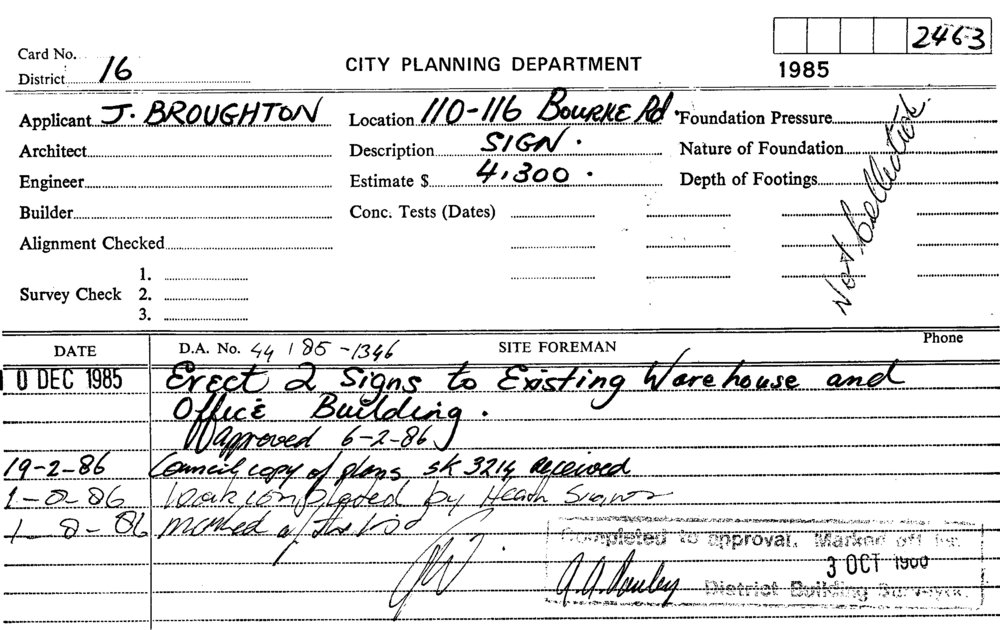 2463
Card No.
District 16
CITY PLANNING DEPARTMENT
1985
Applicant J. BROUGHTON
Location 110-116 BOURKE Rd
Foundation Pressure
Architect
Description SIGN.
Nature of Foundation
Engineer
Estimate $ 4,300.
Depth of Footings
Builder
Conc. Tests (Dates)
Alignment Checked
Not Collected
Survey Check
1.
2.
3.
DATE
D.A. No. 44 85-1346
SITE FOREMAN
Phone
10 DEC 1985
Erect 2 Signs to Existing Warehouse and
Office Building.
(Approved 6-2-86)
19-2-86
Council copy of plans sk 3214 received
1-8-86
Work completed by Heath Signs
1-8-86
marked off the list
Completed to approval. Marked off list.
3 OCT
District Building Surveyor.